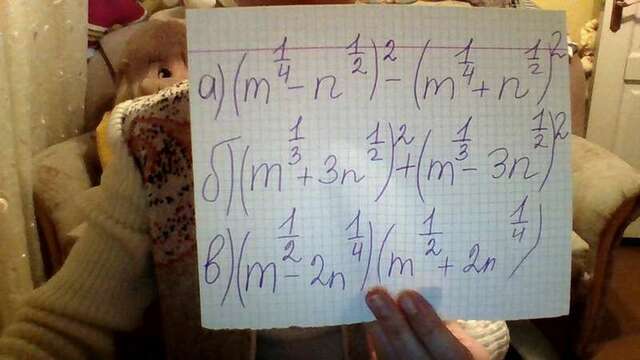 а) (m^{1/4} - n^{1/2})^2 - (m^{1/4} + n^{1/2})^2
б) (m^{1/3} + 3n^{1/2})^2 + (m^{1/3} - 3n^{1/2})^2
в) (m^{1/2} - 2n^{1/4})(m^{1/2} + 2n^{1/4})